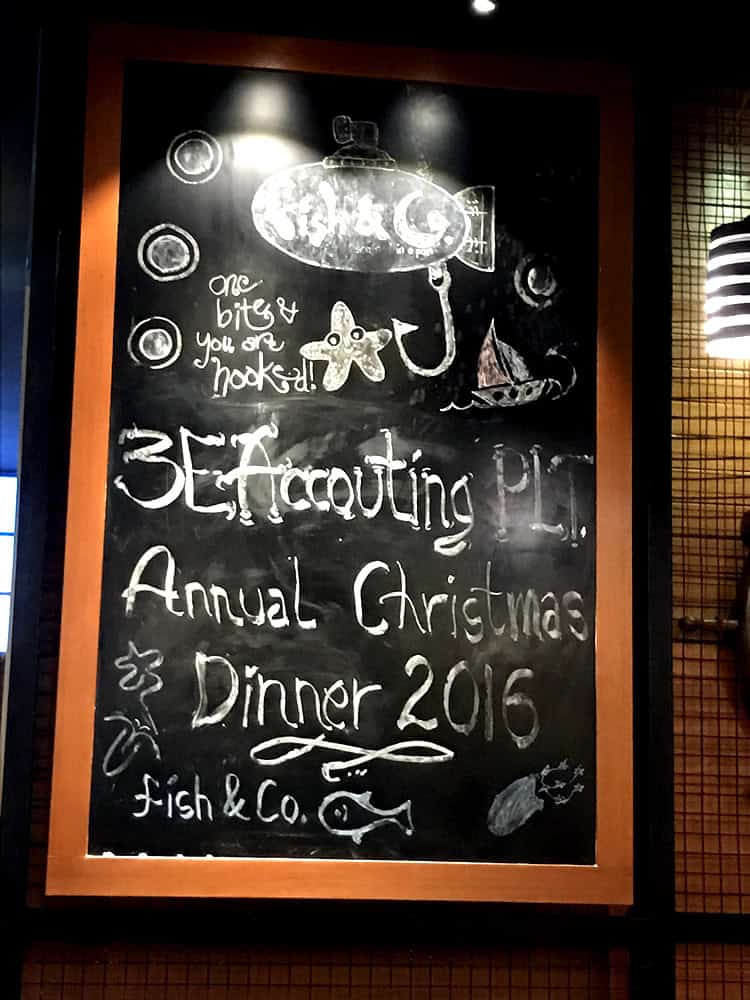 fish & Co
in a pan
one
bite &
you are
hooked!
3E Accouting PLT.
Annual Christmas
Dinner 2016
fish & Co.